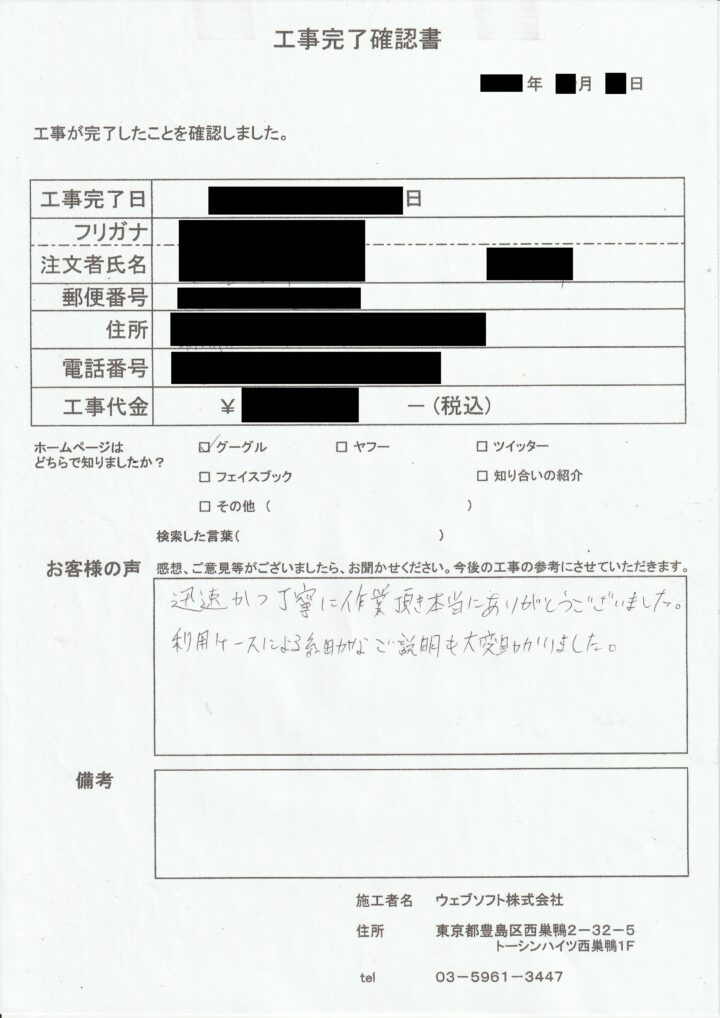 工事完了確認書
年 月 日
工事が完了したことを確認しました。
工事完了日 日
フリガナ
注文者氏名
郵便番号
住所
電話番号
工事代金 ¥ －(税込)
ホームページは
どちらで知りましたか？
☑ グーグル □ ヤフー □ ツイッター
□ フェイスブック □ 知り合いの紹介
□ その他 ( )
検索した言葉( )
お客様の声 感想、ご意見等がございましたら、お聞かせください。今後の工事の参考にさせていただきます。
迅速かつ丁寧に作業頂き本当にありがとうございました。
利用ケースによる細かなご説明も大変助かりました。
備考
施工者名 ウェブソフト株式会社
住所 東京都豊島区西巣鴨2－32－5
トーシンハイツ西巣鴨1F
tel 03－5961－3447